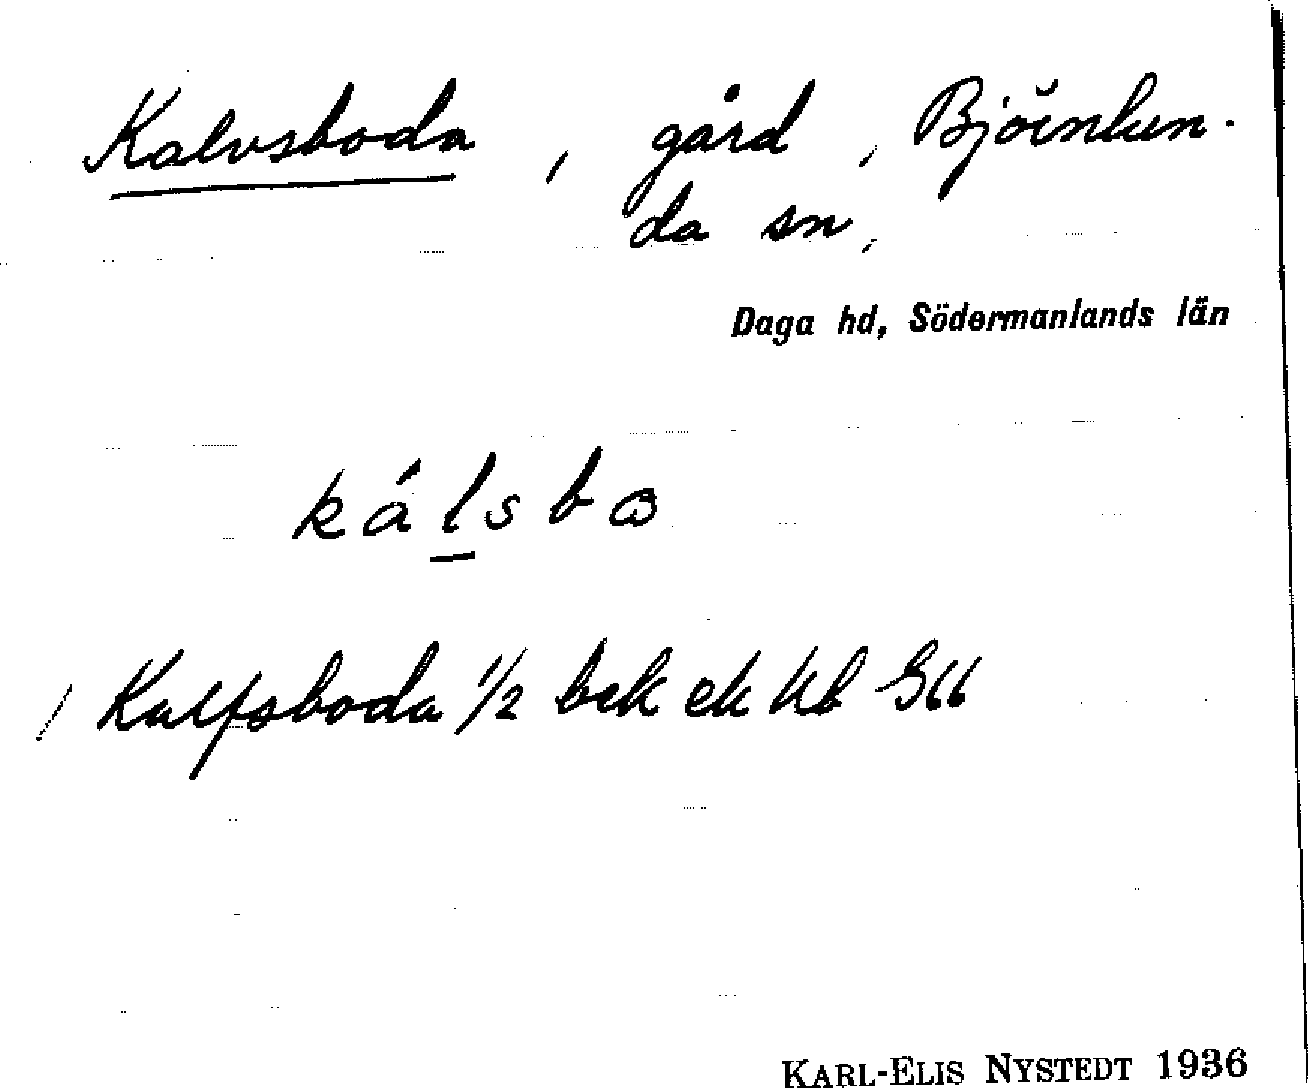 Kalvsboda, gård, Björnlun-
da sn,
Daga hd, Södermanlands län
kálsbɷ
Kalfsboda 1/2 bek ek kb Gkb
KARL-ELIS NYSTEDT 1936